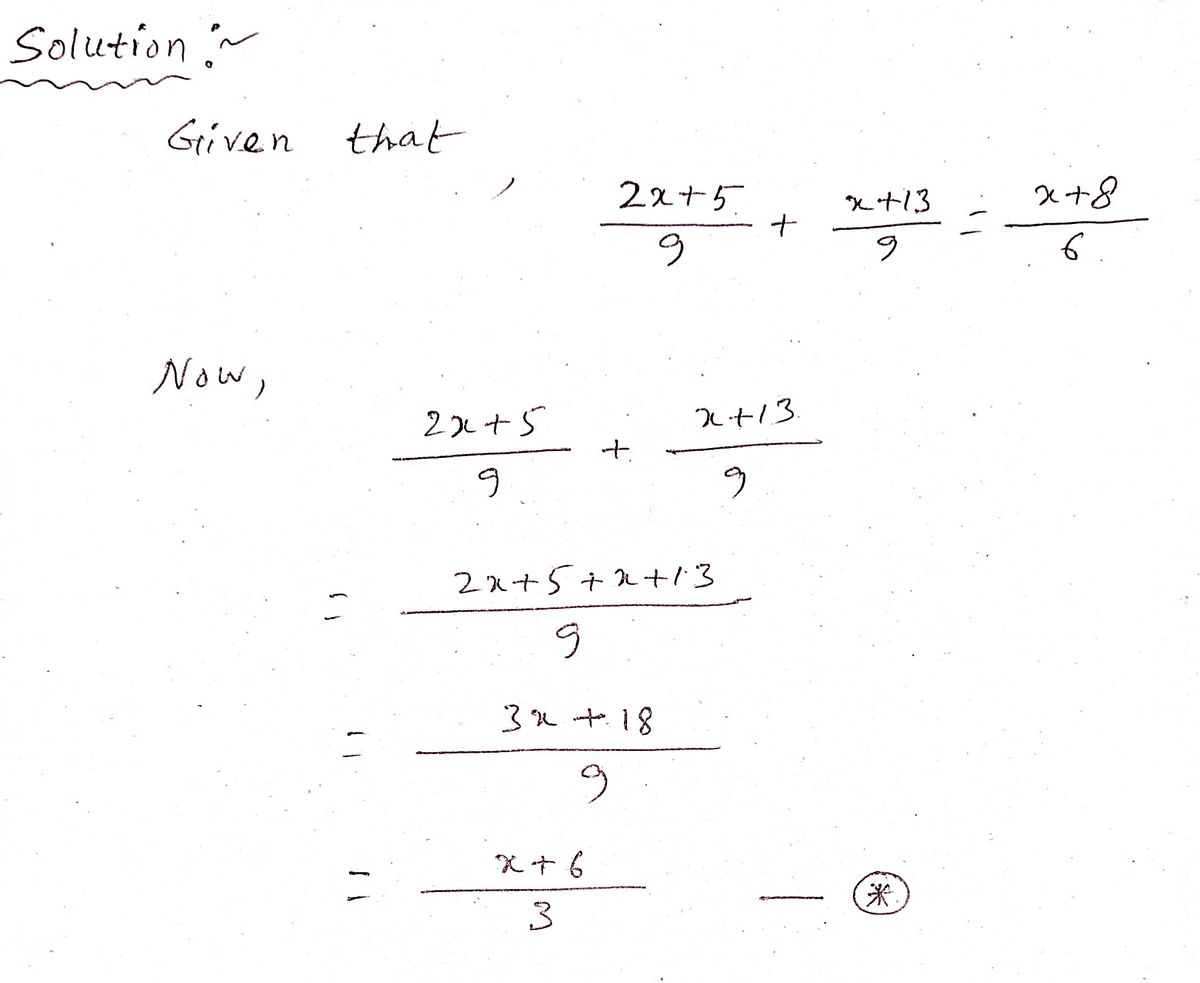 Solution :~
Given that,
(2x+5)/9 + (x+13)/9 = (x+8)/6
Now,
(2x+5)/9 + (x+13)/9
= (2x+5+x+13)/9
= (3x+18)/9
= (x+6)/3 — ⊛